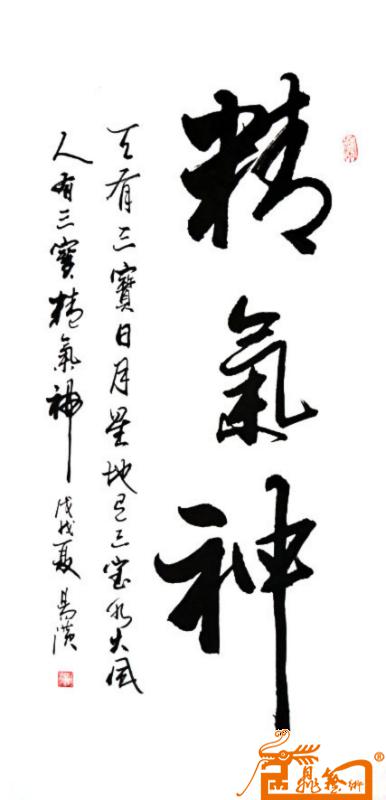 精氣神
天有三寶日月星地有三宝水火風
人有三寶精氣神 戊戌夏